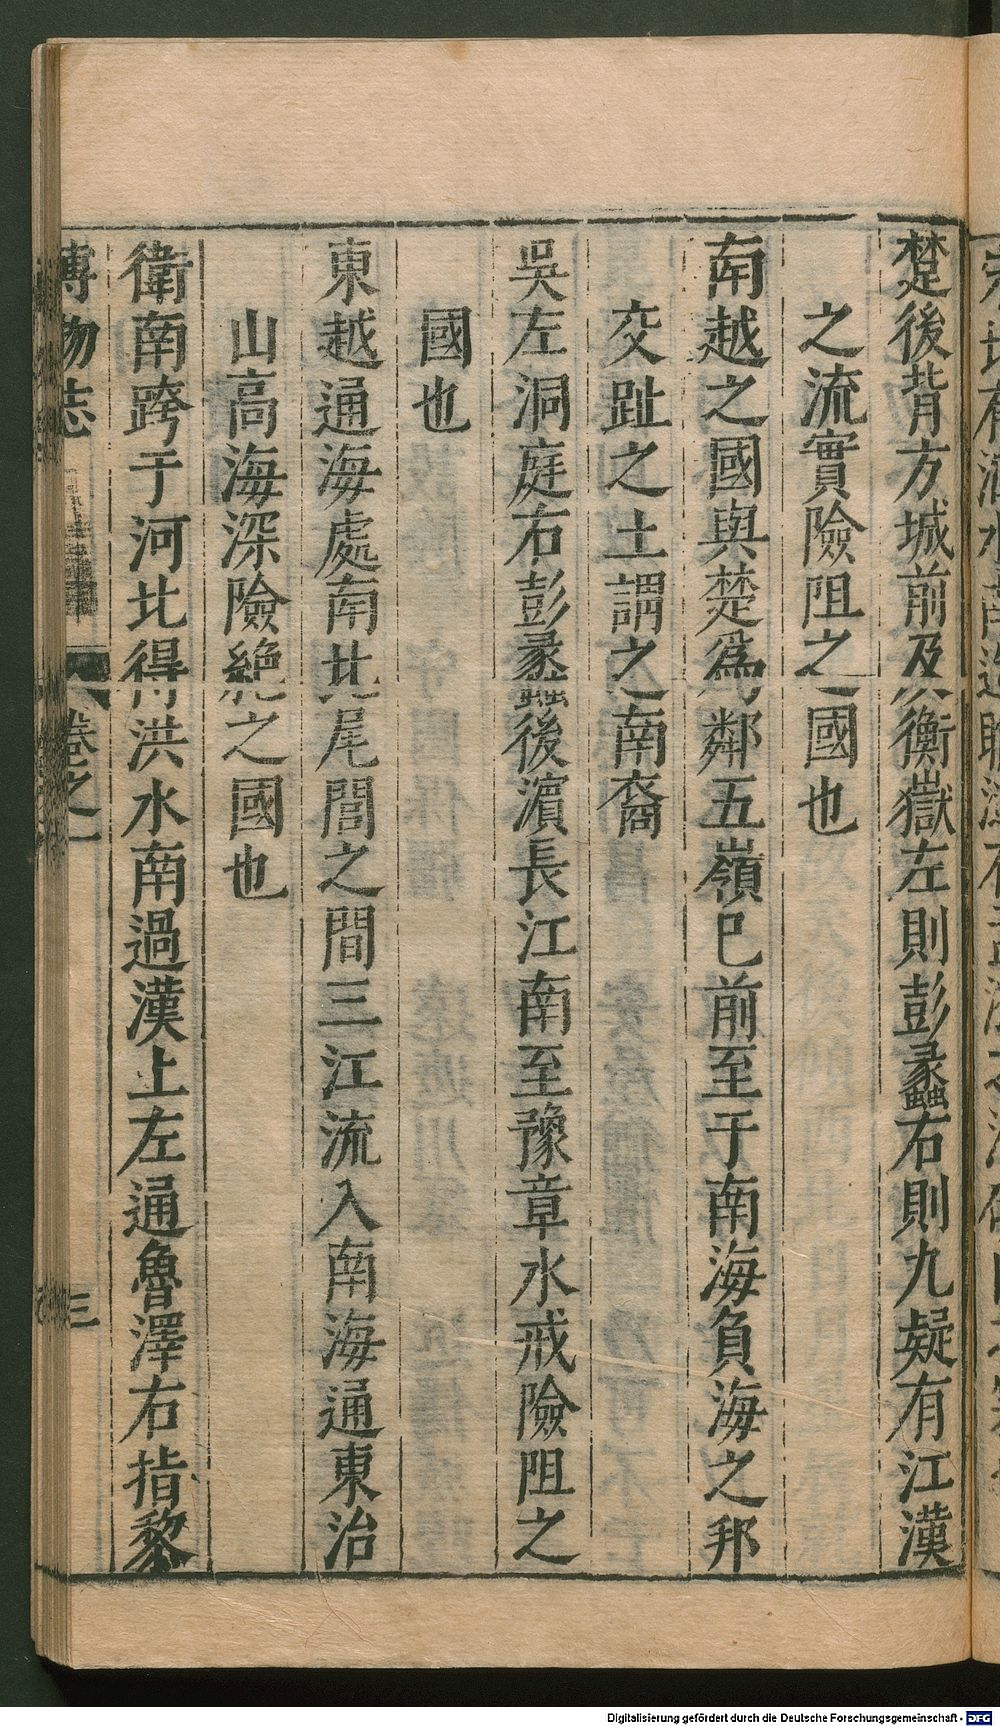 楚後背方城前及衡嶽左則彭蠡右則九疑有江漢
之流實險阻之國也
南越之國與楚爲鄰五嶺巳前至于南海負海之邦
交趾之土謂之南裔
吳左洞庭右彭蠡後濵長江南至豫章水戒險阻之
國也
東越通海處南北尾閭之間三江流入南海通東治
山高海深險絶之國也
衛南跨于河北得洪水南過漢上左通魯澤右指黎
博物志 卷之一 三
Digitalisierung gefördert durch die Deutsche Forschungsgemeinschaft - DFG